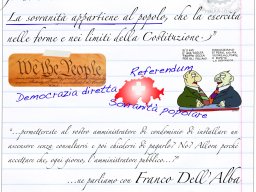 La sovranità appartiene al popolo, che la esercita
nelle forme e nei limiti della Costituzione :-)"
We the People
Referendum
Democrazia diretta
Sovranità popolare
"...permettereste al vostro amministratore di condominio di installare un
ascensore senza consultarvi e poi chiedervi di pagarlo? No? Allora perchè
accettare che, ogni giorno, l'amministratore pubblico...?"
...ne parliamo con Franco Dell'Alba